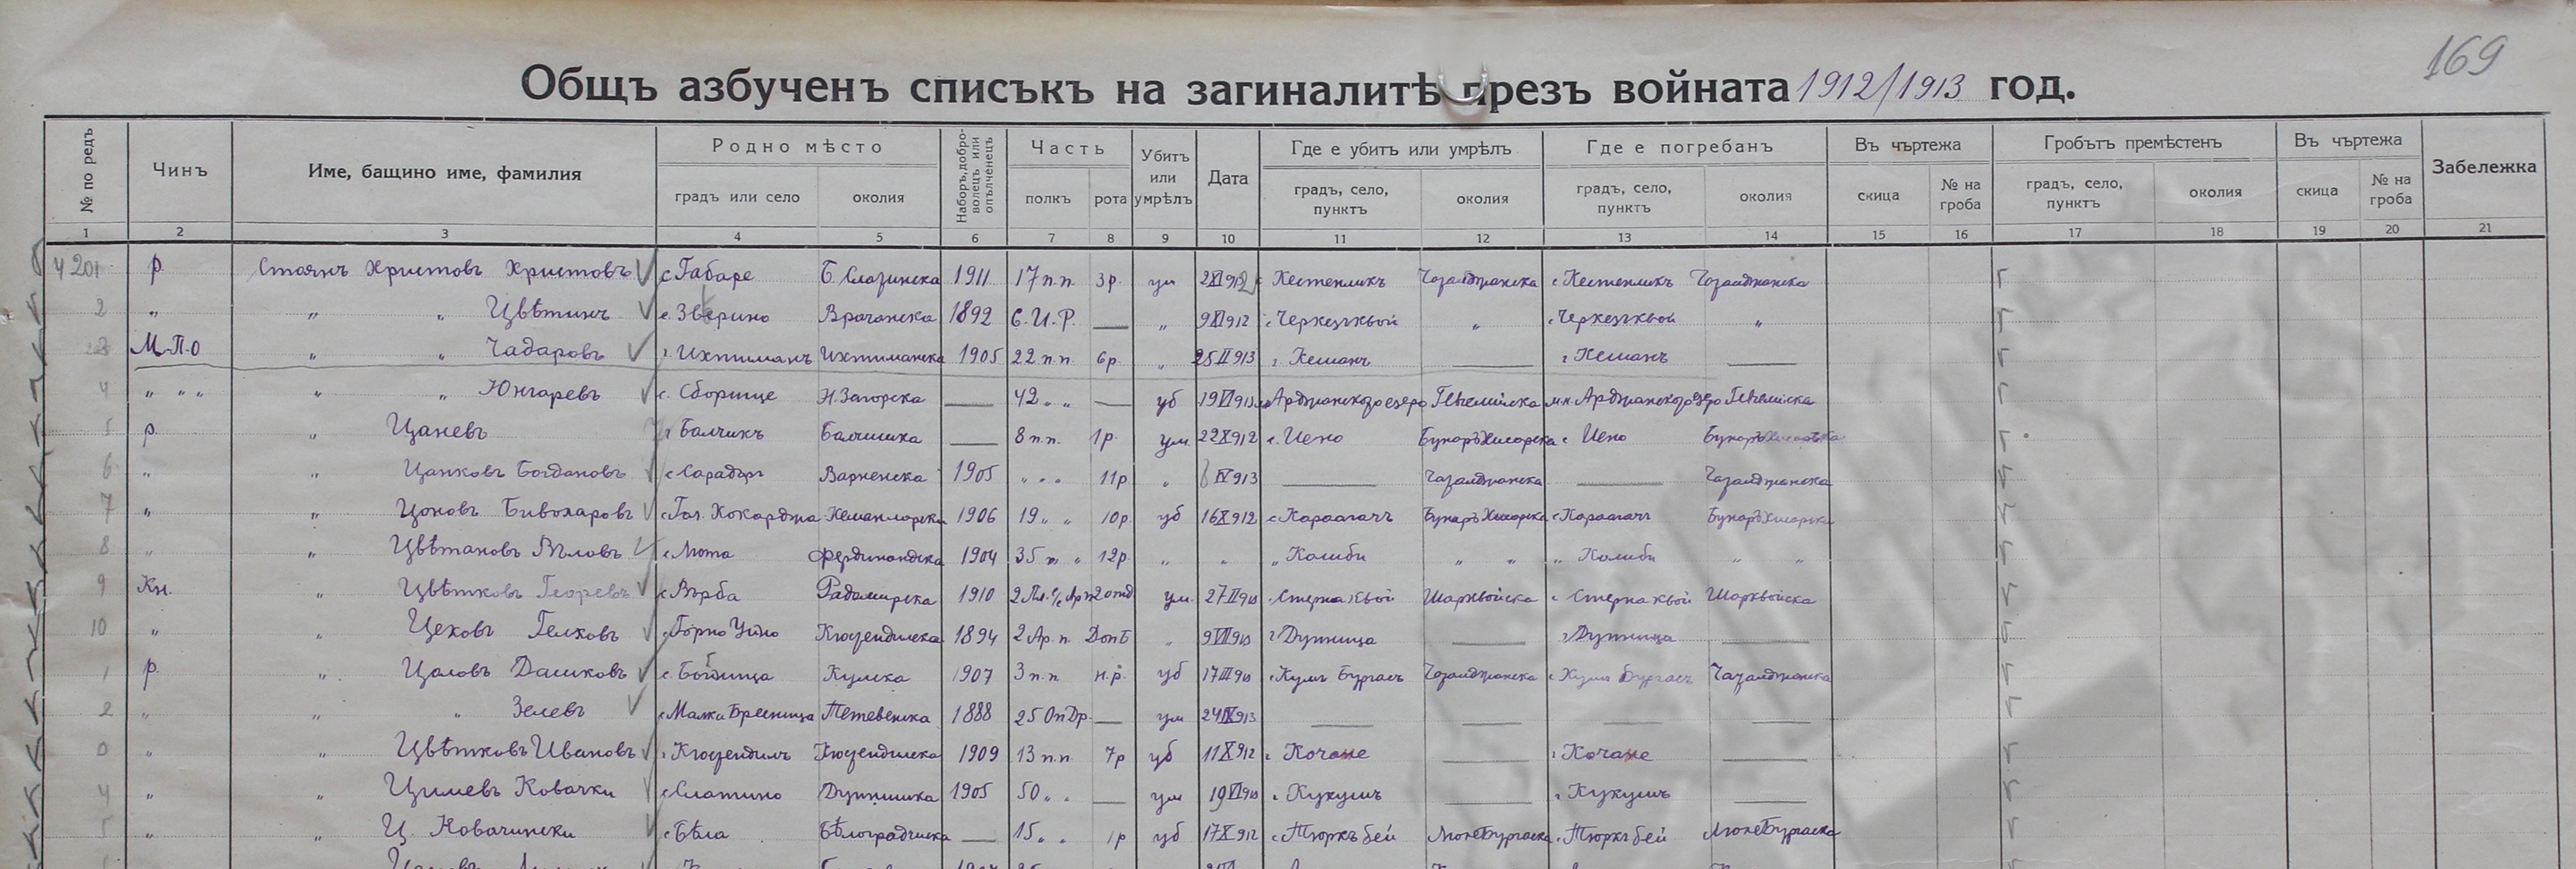 169
Общъ азбученъ списъкъ на загиналитѣ презъ войната 1912/1913 год.
№ по редъ Чинъ Име, бащино име, фамилия Родно мѣсто Наборъ, доброволецъ или опълченецъ Часть Убитъ или умрѣлъ Дата Где е убитъ или умрѣлъ Где е погребанъ Въ чъртежа Гробътъ премѣстенъ Въ чъртежа Забележка
градъ или село околия полкъ рота градъ, село, пунктъ околия градъ, село, пунктъ околия скица № на гроба градъ, село, пунктъ околия скица № на гроба
1 2 3 4 5 6 7 8 9 10 11 12 13 14 15 16 17 18 19 20 21
4201 р. Стоянъ Христовъ Христовъ с. Габаре Б. Слатинска 1911 17 п.п. 3 р. ум 2 XI 912 с. Кестенликъ Чаталджанска с. Кестенликъ Чаталджанска
2 " " " Цвѣтинъ с. Зверино Врачанска 1892 6. И. Р. — " 9 XI 912 с. Черкезкьой " с. Черкезкьой "
3 М.П.О " " Чадаровъ г. Ихтиманъ Ихтиманска 1905 22 п.п. 6 р. " 25 II 913 г. Кешанъ — г. Кешанъ —
4 " " " " " Юнгаревъ с. Сборище Н. Загорска — 42 " " — уб 19 VI 913 Арджанско езеро Гевгелийска м. Арджанско езеро Гевгелийска
5 р. " Цаневъ г. Балчикъ Балчишка — 8 п.п. 1 р. ум. 22 X 912 с. Иено БунаръХисарска с. Иено БунаръХисарска
6 " " Цанковъ Богдановъ с. Сарадъръ Варненска 1905 " " " 11 р " IV 913 — Чаталджанска — Чаталджанска
7 " " Цоновъ Бивола­ровъ с. Гол. Кокарджа Кеманларска 1906 19 " " 10 р. уб 16 X 912 с. Караагачъ БунаръХисарска с. Караагачъ БунаръХисарска
8 " " Цвѣтановъ Вѣловъ с. Мота Фердинандска 1904 35 " " 12 р. " " " Колиби " " " Колиби " "
9 Кн. " Цвѣтковъ Георевъ с. Върба Радомирска 1910 2 отд ум. 27 II 913 с. Стерна кьой Шаркьойска с. Стерна кьой Шаркьойска
10 " " Цековъ Гелковъ с. Горно Уйно Кюстендилска 1894 2 Ар. п. Доп Б " 9 VII 913 г. Дупница — г. Дупница —
1 р. " Цоловъ Дашковъ с. Бойница Кулска 1907 3 п.п. н.р. уб 17 III 913 с. Кумъ Бургасъ Чаталджанска с. Кумъ Бургасъ Чаталджанска
2 " " " Зелевъ с. Малка Брестница Тетевенска 1888 25 ОпДр. — ум 24 IX 913 — — — —
3 " " Цвѣтковъ Ивановъ г. Кюстендилъ Кюстендилска 1909 13 п.п. 7 р уб 11 X 912 г. Кочане — г. Кочане —
4 " " Ковачки с. Слатино Дупнишка 1905 50 " " — ум 19 VI 913 г. Кукушъ — г. Кукушъ —
5 " " Ц. Ковачински с. Бѣла Бѣлоградчишка — 15 " " 1 р уб 17 X 912 с. Тюркъ бей ЛюлеБургаска с. Тюркъ бей ЛюлеБургаска